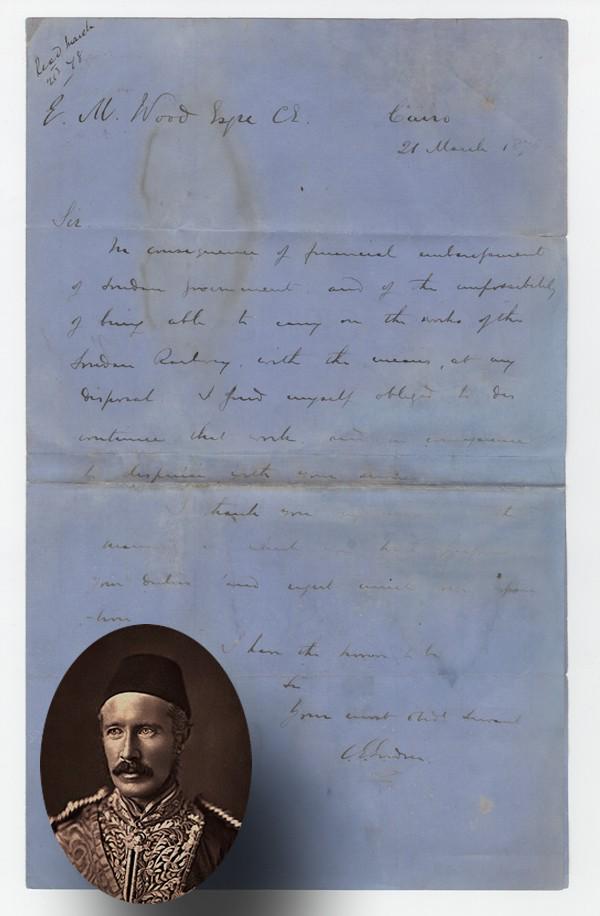 Recd March
26 78
E. M. Wood Esqre C.E.
Cairo
21 March 187
Sir
In consequence of financial embarrassment
of Soudan government and of the impossibility
of being able to carry on the works of the
Soudan Railway, with the means, at my
disposal I find myself obliged to dis
continue that work, and in consequence
to dispense with your
I thank you
in which you have
your duties and regret
I have the honor to be
Sir
Your most obdt Servant
C. E. Gordon